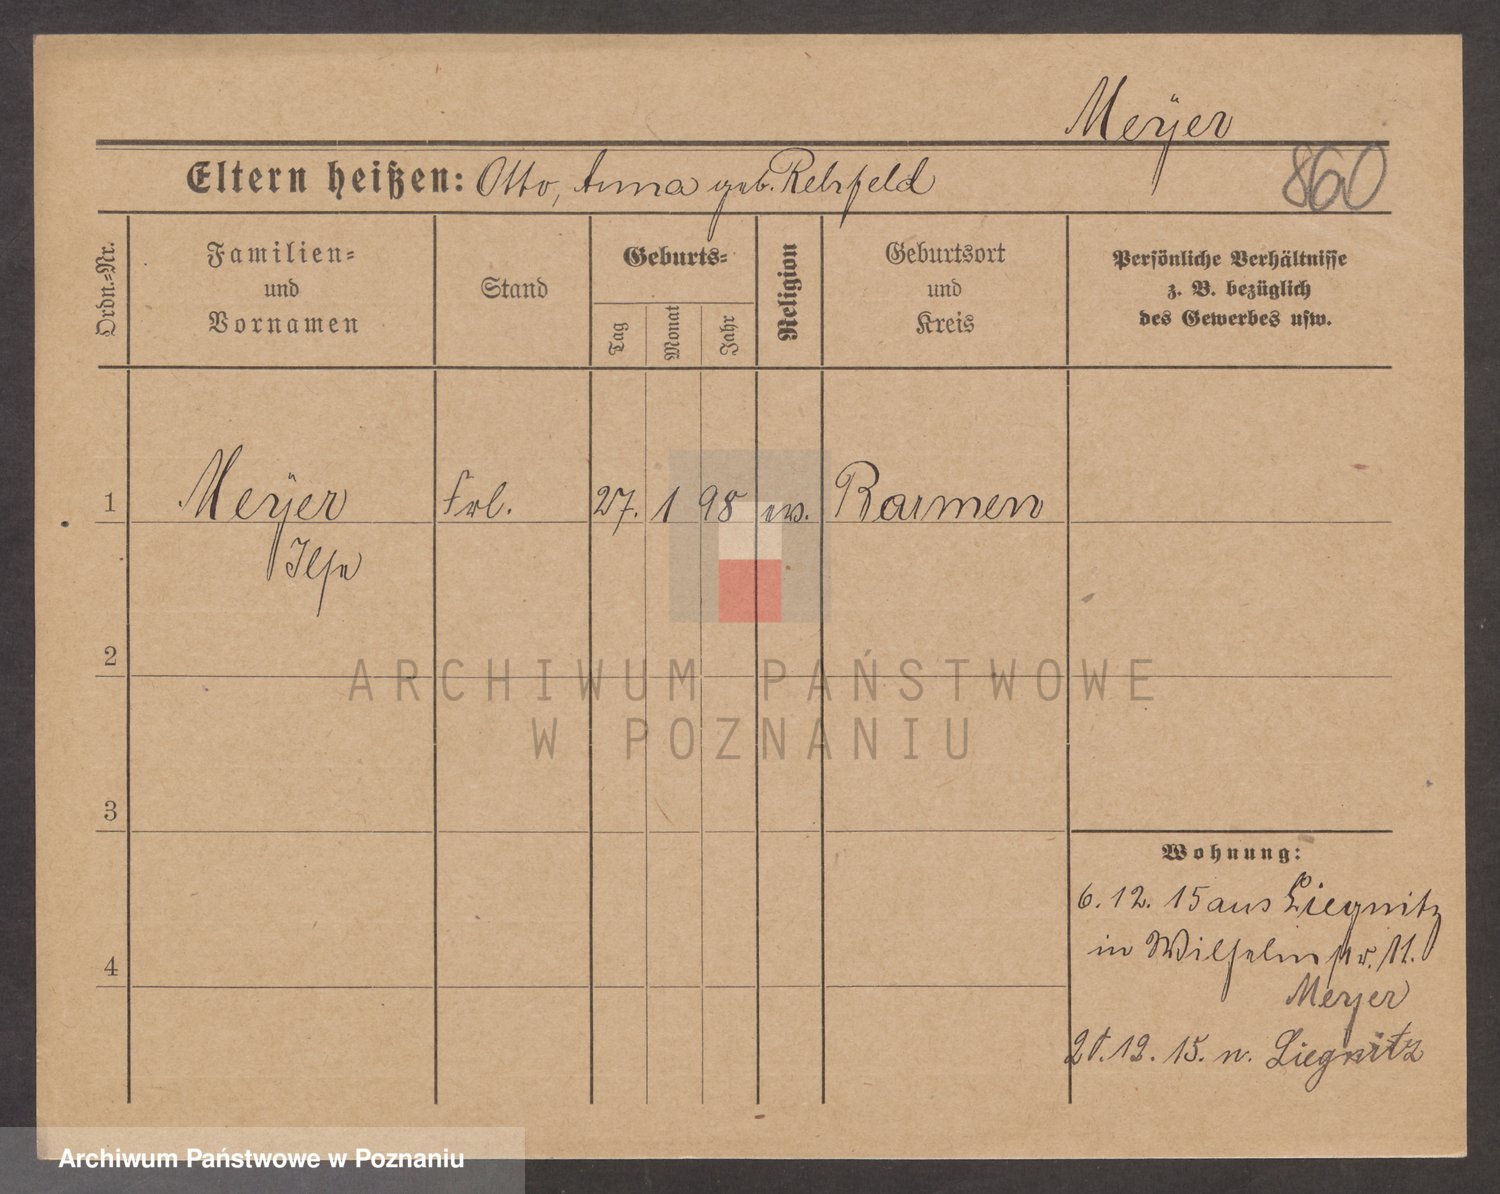 Meÿer
860
Eltern heißen: Otto, Anna geb. Rehfeld
Ordn.=Nr.
Familien=
und
Vornamen
Stand
Geburts=
Tag
Monat
Jahr
Religion
Geburtsort
und
Kreis
Persönliche Verhältnisse
z. B. bezüglich
des Gewerbes usw.
1
Meÿer
Frl.
27.
1
98
ev.
Barmen
Ilse
2
ARCHIWUM PAŃSTWOWE
W POZNANIU
3
Wohnung:
6. 12. 15 aus Liegnitz
in Wilhelmstr. 11.
4
Meyer
12. 15. n. Liegnitz
Archiwum Państwowe w Poznaniu